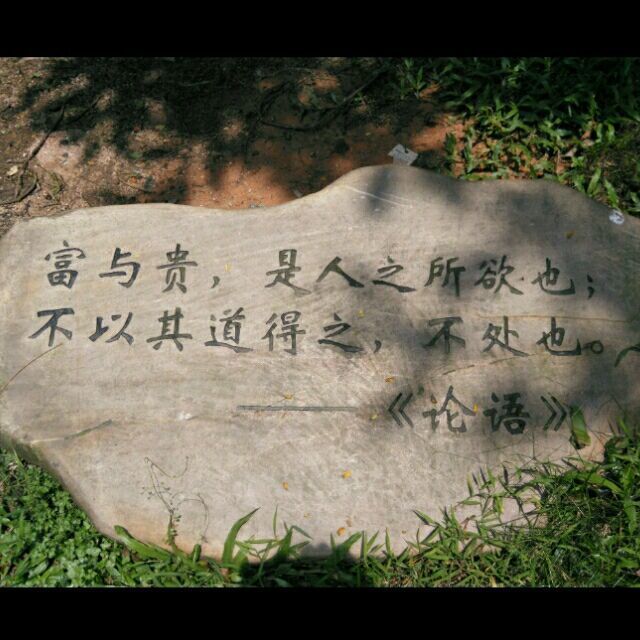 富与贵，是人之所欲也；
不以其道得之，不处也。
——《论语》